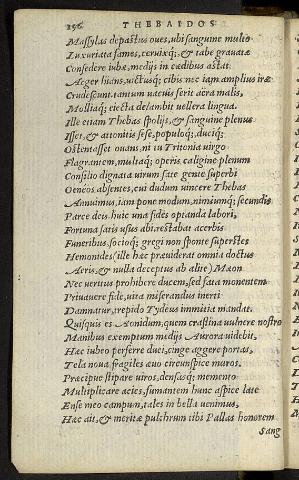 156 THEBAIDOS
Massylas depastus oues, ubi sanguine multo
Luxuriata fames, ceruixq;, & tabe grauatæ
Consedere iubæ, medijs in cædibus astat
Aeger hians, uictusq; cibis: nec iam amplius iræ
Crudescunt. tantum uacuis ferit aëra malis,
Molliaq; eiecta delambit uellera lingua.
Ille etiam Thebas spolijs, & sanguine plenus
Isset, & attonitis sese, populoq;, duciq;
Ostentasset ouans, ni tu Tritonia uirgo
Flagrantem, multaq; operis caligine plenum
Consilio dignata uirum sate gente superbi
Oeneos absentes, cui dudum uincere Thebas
Annuimus, iam pone modum, nimiumq; secundis
Parce deis. huic una fides optanda labori,
Fortuna satis usus abi. restabat acerbis
Funeribus, socioq; gregi non sponte superstes
Hemonides (ille hæc præuiderat omnia doctus
Aeris, & nulla deceptus ab alite) Mæon
Nec ueritus prohibere ducem, sed fata monentem
Priuauere fide, uita miserandus inerti
Damnatur, trepido Tydeus immitia mandat.
Quisquis es Aonidum, quem crastina uulnere nostro
Manibus exemptum medijs Aurora uidebit,
Hæc iubeo perferre duci, cinge aggere portas,
Tela noua, fragiles æuo circunspice muros.
Præcipue stipare uiros, densasq; memento
Multiplicare acies, fumantem hunc aspice late
Ense meo campum, tales in bella uenimus.
Hæc ait, & meritæ pulchrum tibi Pallas honorem
Sang